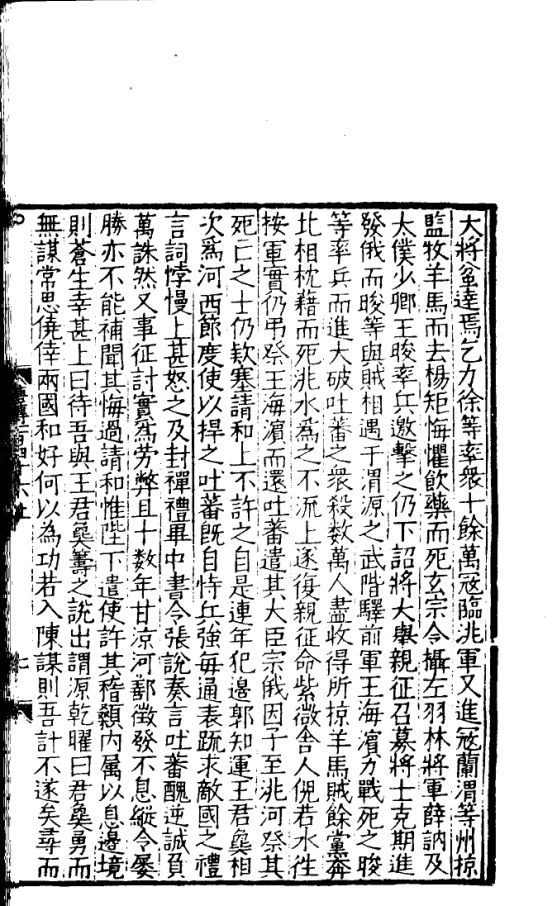 大將坌達焉乞力徐等率衆十餘萬寇臨洮軍又進寇蘭渭等州掠
監牧羊馬而去楊矩悔懼飲藥而死玄宗令攝左羽林將軍薛訥及
太僕少卿王晙率兵邀擊之仍下詔將大舉親征召募將士克期進
發俄而晙等與賊相遇于渭源之武階驛前軍王海濱力戰死之晙
等率兵而進大破吐蕃之衆殺数萬人盡收得所掠羊馬賊餘黨奔
北相枕藉而死洮水爲之不流上遂復親征命紫微舍人倪若水徃
按軍實仍弔祭王海濱而還吐蕃遣其大臣宗俄因子至洮河祭其
死亡之士仍欵塞請和上不許之自是連年犯邊郭知運王君㚟相
次爲河西節度使以捍之吐蕃旣自恃兵強每通表䟽求敵國之禮
言詞悖慢上甚怒之及封禪禮畢中書令張說奏言吐蕃醜逆誠負
萬誅然又事征討實爲劳弊且十数年甘凉河鄯徵發不息縱令屢
勝亦不能補聞其悔過請和惟陛下遣使許其稽顙内属以息邊境
則蒼生幸甚上曰待吾與王君㚟籌之說出謂源乾曜曰君㚟勇而
無謀常思僥倖兩國和好何以為功若入陳謀則吾計不遂矣尋而